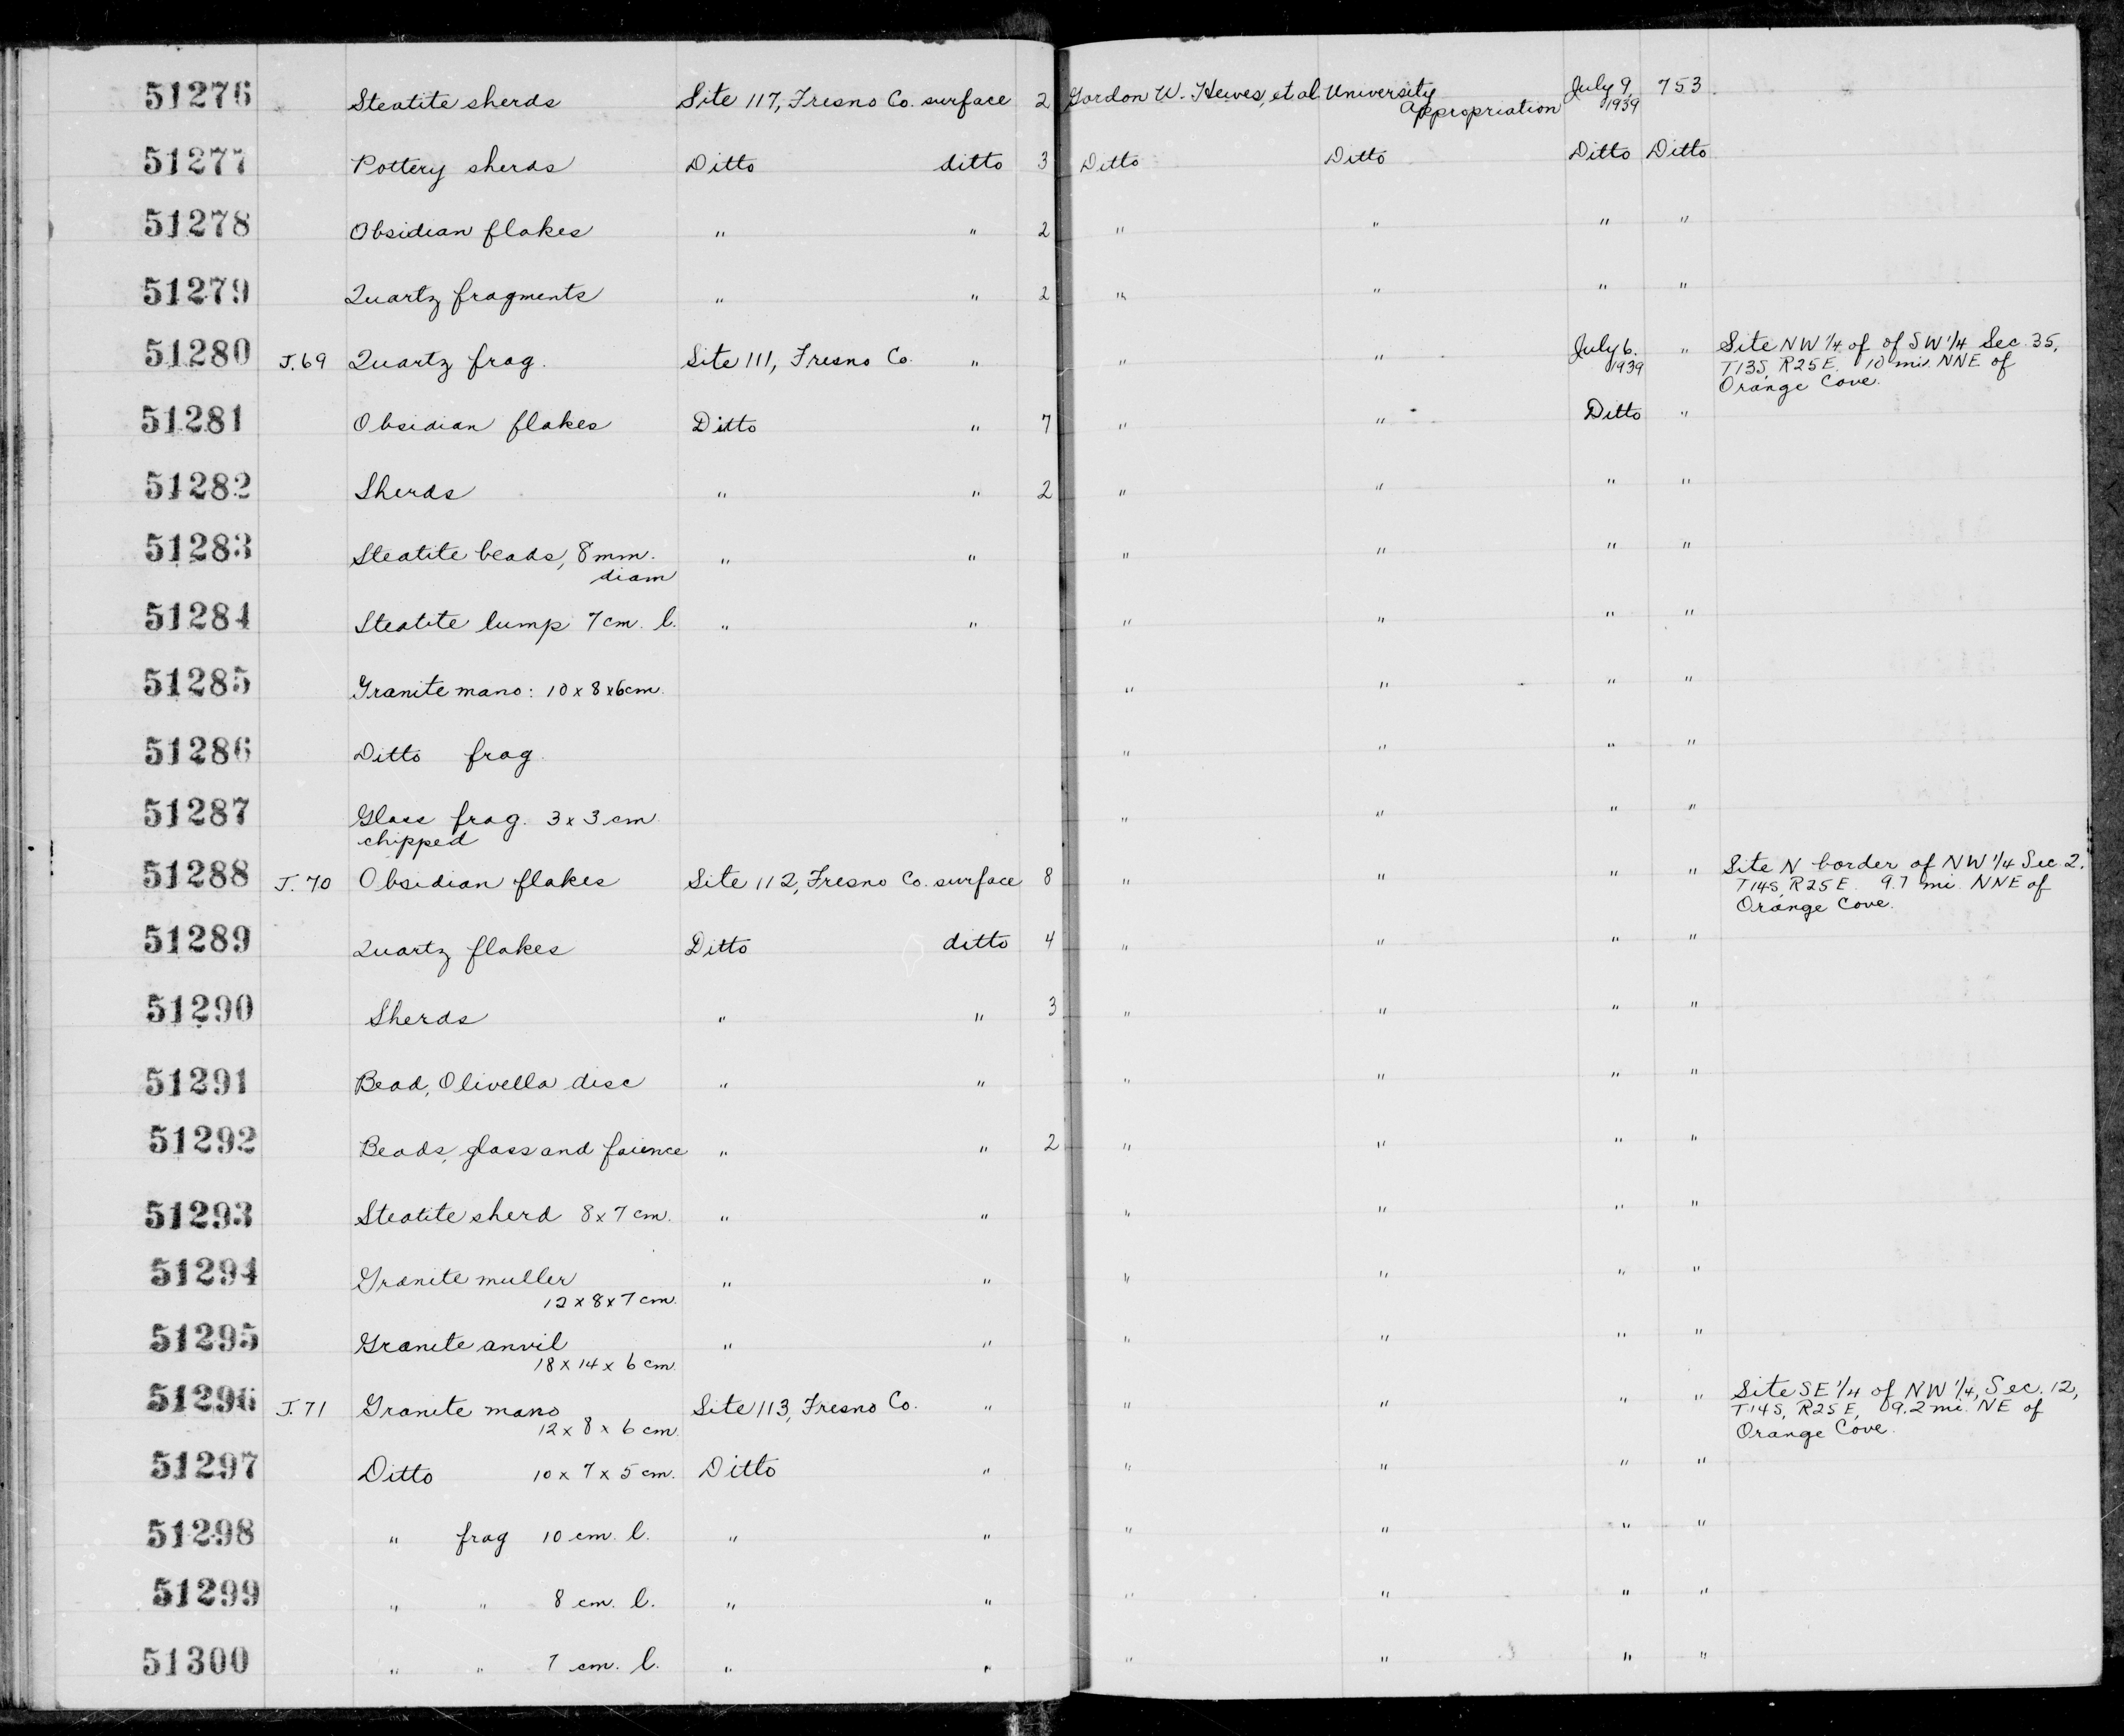 51276 Steatite sherds Site 117, Fresno Co. surface 2 Gordon W. Hewes, et al University Appropriation July 9, 1939 753
51277 Pottery sherds Ditto ditto 3 Ditto Ditto Ditto Ditto
51278 Obsidian flakes " " 2 " " " "
51279 Quartz fragments " " 2 " " " "
51280 J.69 Quartz frag. Site 111, Fresno Co. " " " July 6. 1939 " Site NW 1/4 of of SW 1/4 Sec 35,
T13S, R25E. 10 mi. NNE of
Orange Cove.
51281 Obsidian flakes Ditto " 7 " " Ditto "
51282 Sherds " " 2 " " " "
51283 Steatite beads, 8 mm. " " " " " "
diam
51284 Steatite lump 7 cm. l. " " " " " "
51285 Granite mano: 10 x 8 x 6 cm. " " " "
51286 Ditto frag. " " " "
51287 Glass frag. 3 x 3 cm " " " "
chipped
51288 J.70 Obsidian flakes Site 112, Fresno Co. surface 8 " " " " Site N border of NW 1/4 Sec 2.
T14S, R25E. 9.7 mi. NNE of
Orange Cove.
51289 Quartz flakes Ditto ditto 4 " " " "
51290 Sherds " " 3 " " " "
51291 Bead, Olivella disc " " " " " "
51292 Beads, glass and faience " " 2 " " " "
51293 Steatite sherd 8 x 7 cm. " " " " " "
51294 Granite muller " " " " " "
12 x 8 x 7 cm.
51295 Granite anvil " " " " " "
18 x 14 x 6 cm.
51296 J.71 Granite mano Site 113, Fresno Co. " " " " " Site SE 1/4 of NW 1/4, Sec. 12,
12 x 8 x 6 cm. T14S, R25E, 9.2 mi. NE of
Orange Cove.
51297 Ditto 10 x 7 x 5 cm. Ditto " " " " "
51298 " frag 10 cm. l. " " " " " "
51299 " " 8 cm. l. " " " " " "
51300 " " 7 cm. l. " " " " " "